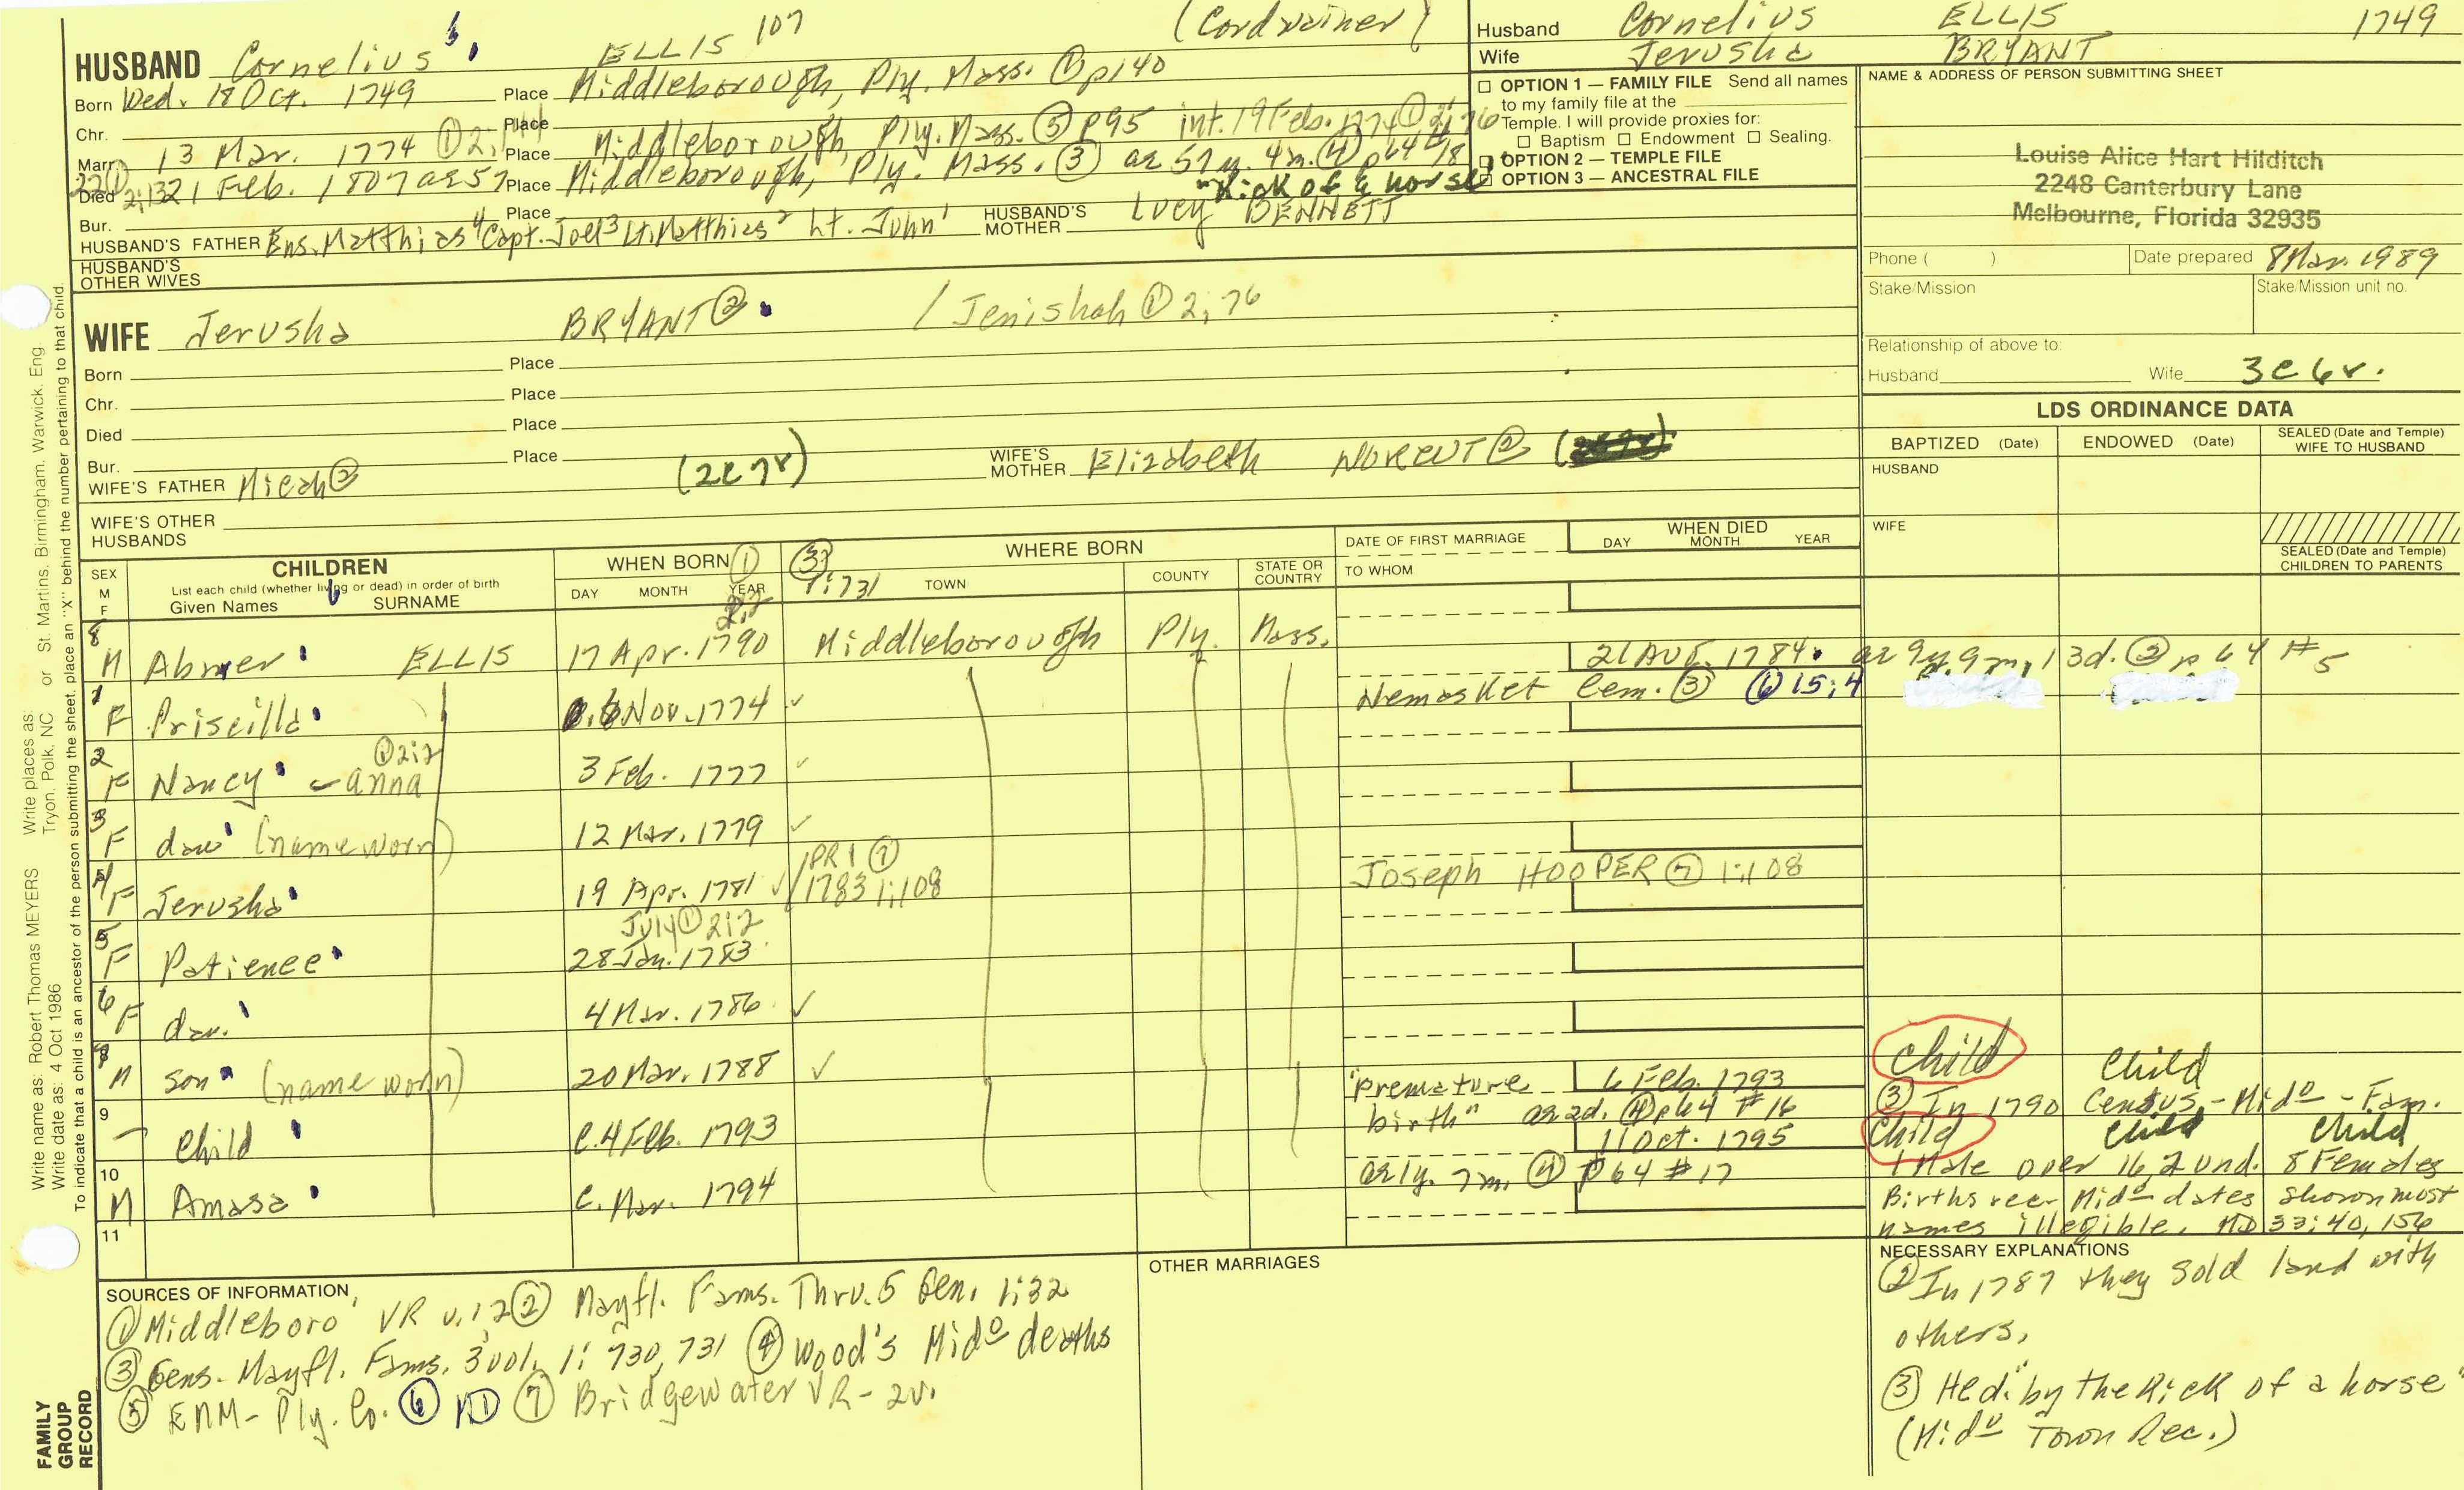 HUSBAND Cornelius ELLIS 107 (Cordwainer)
Born Wed. 18 Oct. 1749 Place Middleborough, Ply. Mass. ① p140
Chr. Place
Marr. 13 Mar. 1774 ① 2; Place Middleborough, Ply. Mass. ⑤ p95 int. 19 Feb. 1774 ① 2;76
Died 21 Feb. 1807 ae 57 Place Middleborough, Ply. Mass. ③ ae 57y. 4m. ④ p64 #18
22① 2;132
"Kick of a horse"
Bur. Place
HUSBAND'S FATHER Ens. Matthias⁴ Capt. Joel³ Lt. Matthias² Lt. John¹ HUSBAND'S MOTHER Lucy BENNETT
HUSBAND'S OTHER WIVES
WIFE Jerusha BRYANT② / Jenishah ① 2;76
Born Place
Chr. Place
Died Place
Bur. Place
WIFE'S FATHER Micah② (2c7r) WIFE'S MOTHER Elizabeth ②
WIFE'S OTHER HUSBANDS
Husband Cornelius ELLIS 1749
Wife Jerusha BRYANT
□ OPTION 1 — FAMILY FILE Send all names
to my family file at the
Temple. I will provide proxies for:
□ Baptism □ Endowment □ Sealing.
□ OPTION 2 — TEMPLE FILE
OPTION 3 — ANCESTRAL FILE
NAME & ADDRESS OF PERSON SUBMITTING SHEET
Louise Alice Hart Hilditch
2248 Canterbury Lane
Melbourne, Florida 32935
Phone ( ) Date prepared 8 Mar. 1989
Stake/Mission Stake/Mission unit no.
Relationship of above to:
Husband Wife 3c6r.
LDS ORDINANCE DATA
BAPTIZED (Date) ENDOWED (Date) SEALED (Date and Temple) WIFE TO HUSBAND
HUSBAND
WIFE
SEALED (Date and Temple) CHILDREN TO PARENTS
SEX M F
CHILDREN
List each child (whether living or dead) in order of birth
Given Names SURNAME
WHEN BORN ①
DAY MONTH YEAR
2;2
③ 1:731
WHERE BORN
TOWN COUNTY STATE OR COUNTRY
DATE OF FIRST MARRIAGE
TO WHOM
WHEN DIED
DAY MONTH YEAR
8 M Abner ELLIS 17 Apr. 1790 Middleborough Ply. Mass.
21 Aug. 1784 ae 9y. 9m. 13d. ② p64 #5
1 F Priscilla Nov. 1774 ✓ Nemasket Cem. ③ ⑥ 15;4
2 F Nancy - anna ① 2;2 3 Feb. 1777 ✓
3 F dau (name worn) 12 Mar. 1779 ✓
4 F Jerusha 19 Apr. 1781 ✓ / PR1 ⑦ 1783 1;108 Joseph HOOPER ⑦ 1:108
July ① 2;2
5 F Patience 28 Jan. 1783
6 F dau. 4 Mar. 1786 ✓
M son (name worn) 20 Mar. 1788 ✓
"premature birth" 6 Feb. 1793 ae 2d. ④ p64 #16
9 Child c. 4 Feb. 1793
11 Oct. 1795
10 M Amasa c. Mar. 1794 ae 1y. 7m. ④ p64 #17
11
Child Child
③ In 1790 Census - Mido - Fam.
Child Child Child
1 Male over 16 2 und. 8 Females
Births rec Mido dates shown most
names illegible. MD 33:40, 156
SOURCES OF INFORMATION
① Middleboro VR v.1,2 ② Mayfl. Fams. Thru. 5 Gen. 1:32
③ Gens. Mayfl. Fams. 3 vol. 1: 730, 731 ④ Wood's Mido deaths
⑤ ENM - Ply. Co. ⑥ MD ⑦ Bridgewater VR - 2v.
OTHER MARRIAGES
NECESSARY EXPLANATIONS
② In 1787 they sold land with
others.
③ He d. "by the Kick of a horse"
(Mido Town Rec.)
Write name as: Robert Thomas MEYERS Write places as: Tryon, Polk, NC or St. Martins, Birmingham, Warwick, Eng
Write date as: 4 Oct 1986
To indicate that a child is an ancestor of the person submitting the sheet, place an "X" behind the number pertaining to that child.
FAMILY
GROUP
RECORD